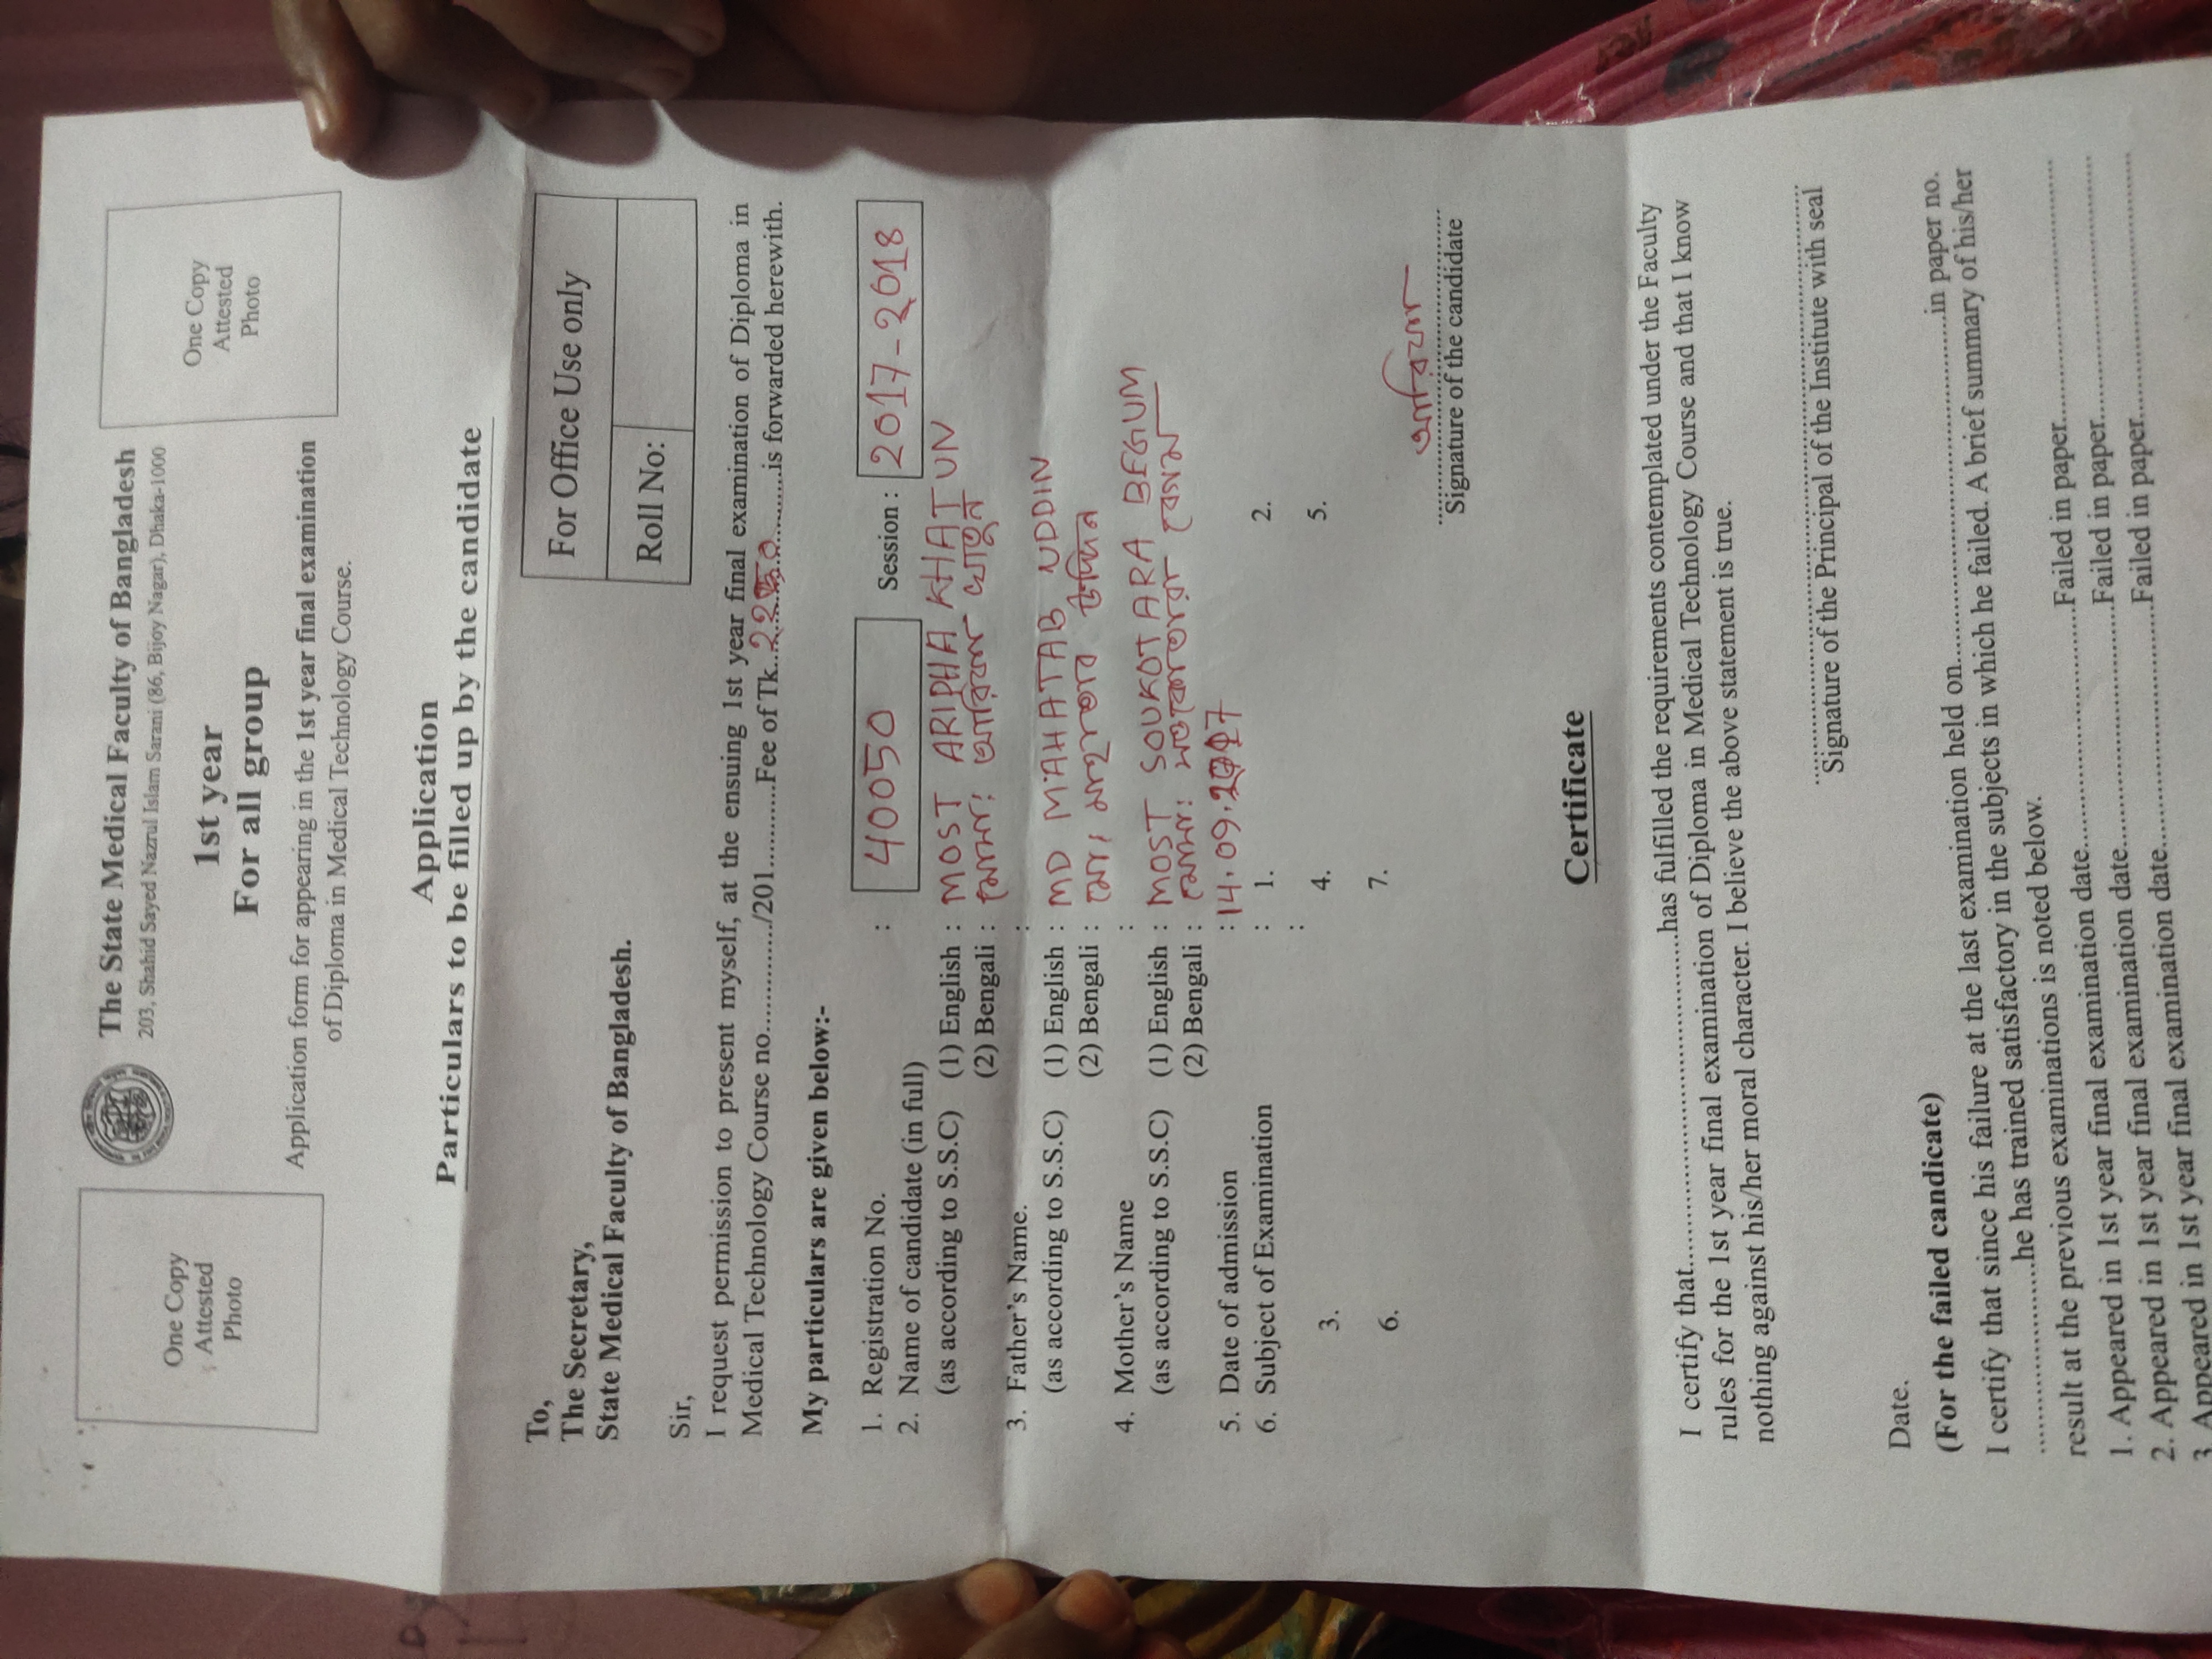 One Copy
Attested
Photo
The State Medical Faculty of Bangladesh
203, Shahid Sayed Nazrul Islam Sarani (86, Bijoy Nagar), Dhaka-1000
1st year
For all group
Application form for appearing in the 1st year final examination
of Diploma in Medical Technology Course.
One Copy
Attested
Photo
Application
Particulars to be filled up by the candidate
To,
The Secretary,
State Medical Faculty of Bangladesh.
For Office Use only
Roll No:
Sir,
I request permission to present myself, at the ensuing 1st year final examination of Diploma in
Medical Technology Course no............../201...........Fee of Tk..2250..........is forwarded herewith.
My particulars are given below:-
1. Registration No. : 40050 Session : 2017-2018
2. Name of candidate (in full)
(as according to S.S.C) (1) English : MOST ARIPHA KHATUN
(2) Bengali : মোসা: আরিফা খাতুন
3. Father's Name. :
(as according to S.S.C) (1) English : MD MAHATAB UDDIN
(2) Bengali : মো: মাহাতাব উদ্দিন
4. Mother's Name :
(as according to S.S.C) (1) English : MOST SOUKOT ARA BEGUM
(2) Bengali : মোসা: সওকোতারা বেগম
5. Date of admission : 14.09.2017
6. Subject of Examination : 1. 2.
:
3. 4. 5.
6. 7.
আরিফা
Signature of the candidate
Certificate
I certify that.......................................has fulfilled the requirements contemplated under the Faculty
rules for the 1st year final examination of Diploma in Medical Technology Course and that I know
nothing against his/her moral character. I believe the above statement is true.
Signature of the Principal of the Institute with seal
Date.
(For the failed candicate)
I certify that since his failure at the last examination held on..........................................in paper no.
.......................he has trained satisfactory in the subjects in which he failed. A brief summary of his/her
result at the previous examinations is noted below.
1. Appeared in 1st year final examination date.............................Failed in paper................................
2. Appeared in 1st year final examination date.............................Failed in paper................................
3. Appeared in 1st year final examination date.............................Failed in paper................................